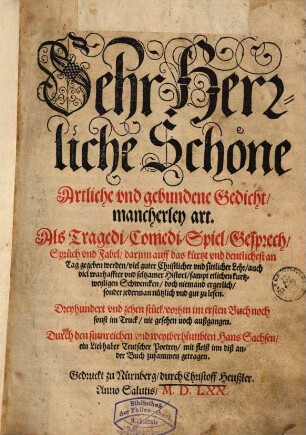 Sehr Herꝛ-
liche Schöne
Artliche vnd gebundene Gedicht/
mancherley art.
Als Tragedi/Comedi/Spiel/Gesprech/
Sprüch vnd Fabel/ darinn auff das kürtzt vnd deutlichest an
Tag gegeben werden/viel guter Christlicher vnd sitlicher Lehr/auch
viel warhaffter vnd seltzamer Histori/sampt etlichen kurtz-
weyligen Schwencken/ doch niemand ergerlich/
sonder jederman nützlich vnd gut zu lesen.
Dreyhundert vnd zehen stück/vorhin im ersten Buch noch
sonst im Truck/ nie gesehen noch außgangen.
Durch den sinnreichen vnd weytberhümbten Hans Sachsen/
ein Liebhaber Teutscher Poeten/ mit fleiß inn diß an-
der Buch zusammen getragen.
Gedruckt zu Nürnberg/durch Christoff Heußler.
Anno Salutis/ M. D. LXX.
Bibliothek